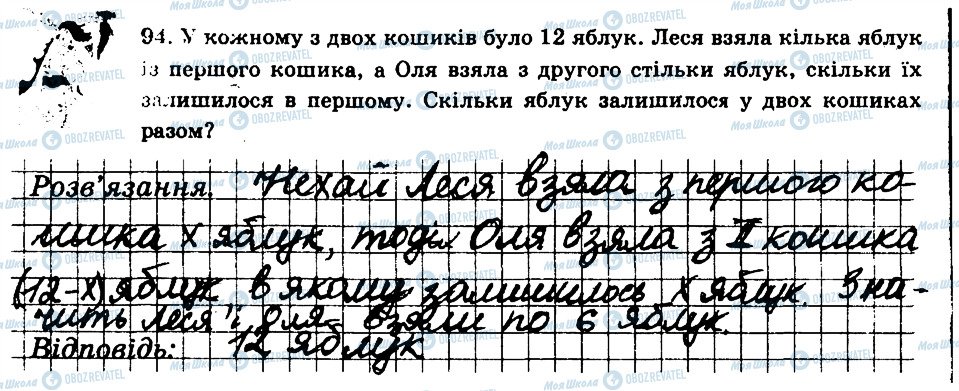 94. У кожному з двох кошиків було 12 яблук. Леся взяла кілька яблук
із першого кошика, а Оля взяла з другого стільки яблук, скільки їх
залишилося в першому. Скільки яблук залишилося у двох кошиках
разом?
Розв'язання. Нехай Леся взяла з першого ко-
шика x яблук, тоді Оля взяла з II кошика
(12-x) яблук в якому залишилось x яблук. Зна-
чить Леся і Оля взяли по 6 яблук.
Відповідь: 12 яблук